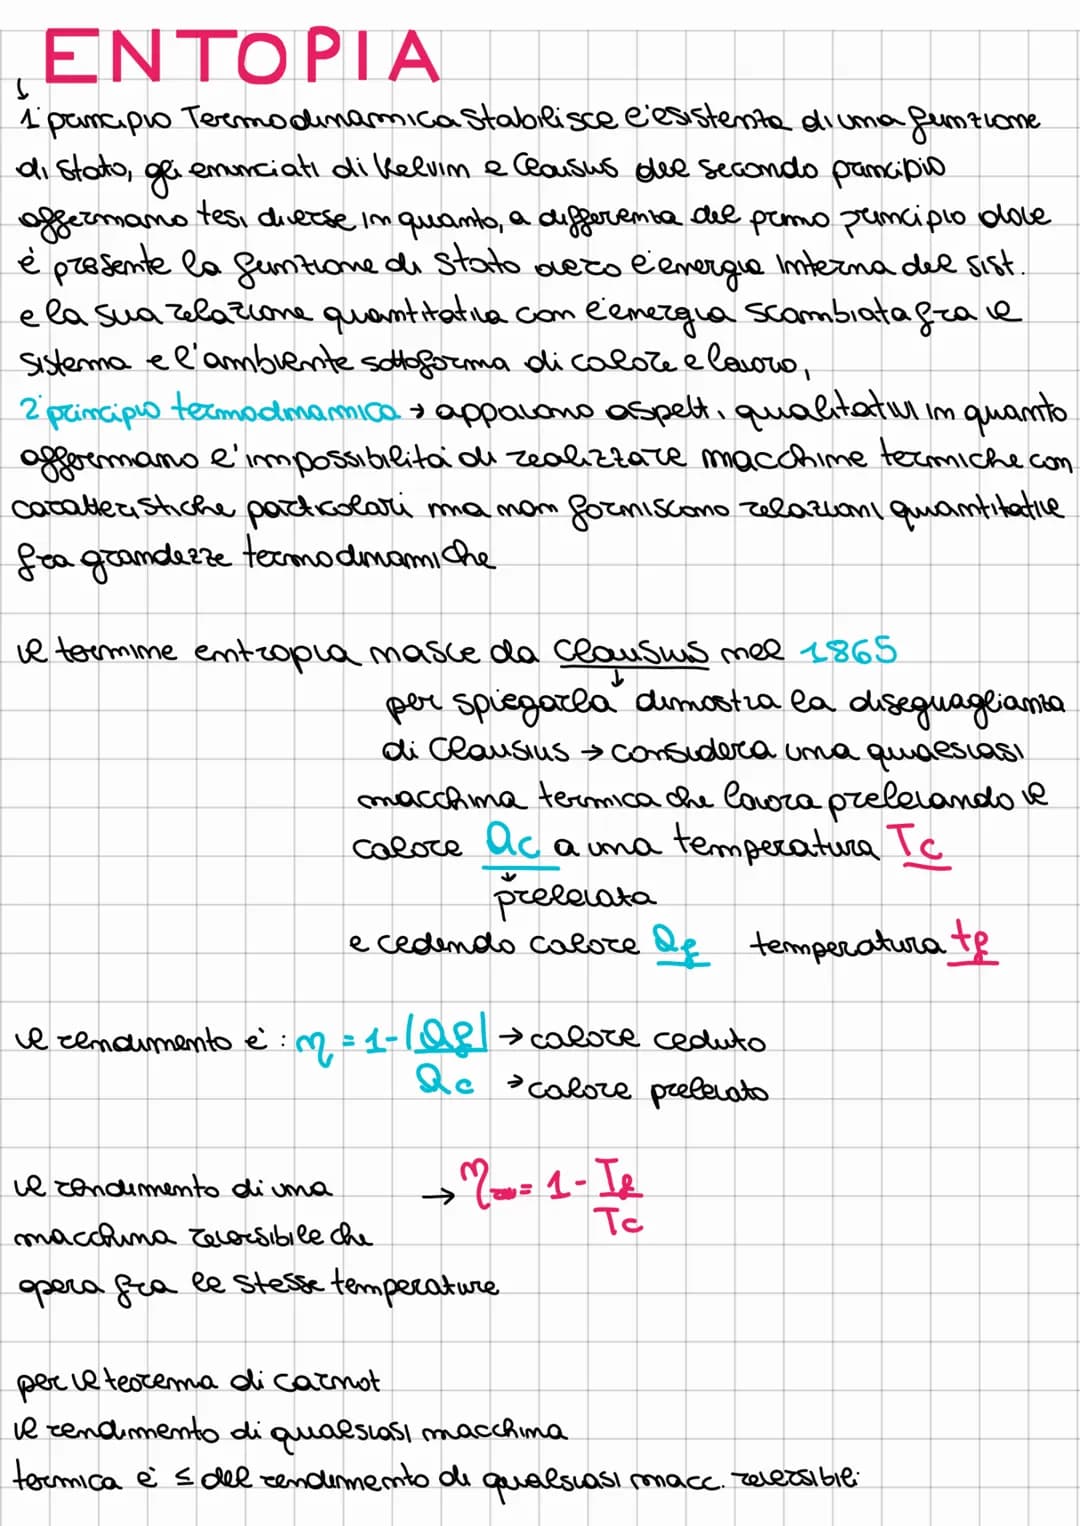 ENTOPIA
↓
1° principio Termodinamica Stabilisce l'esistenza di una funzione
di Stato, gli enunciati di Kelvin e Clausius del secondo principio
affermano tesi diverse in quanto, a differenza del primo principio dove
é presente la funzione di Stato cioè l'energia Interna del sist.
e la sua relazione quantitativa con l'energia scambiata fra il
sistema e l'ambiente sottoforma di calore e lavoro,
2° principio termodinamica → appaiono aspetti qualitativi in quanto
affermano l'impossibilità di realizzare macchine termiche con
caratteristiche particolari ma non forniscono relazioni quantitative
fra grandezze termodinamiche
il termine entropia nasce da Clausius nel 1865
↓
per spiegarla dimostra la diseguaglianza
di Clausius → considera una qualsiasi
macchina termica che lavora prelevando il
calore Qc a una temperatura Tc
↓
prelevata
e cedendo calore Qf temperatura tf
il rendimento è : η = 1-|Qf| → calore ceduto
Qc → calore prelevato
il rendimento di una → η = 1 - Tf
Tc
macchina reversibile che
opera fra le stesse temperature
per il teorema di carnot
il rendimento di qualsiasi macchina
termica è ≤ del rendimento di qualsiasi macc. reversibili